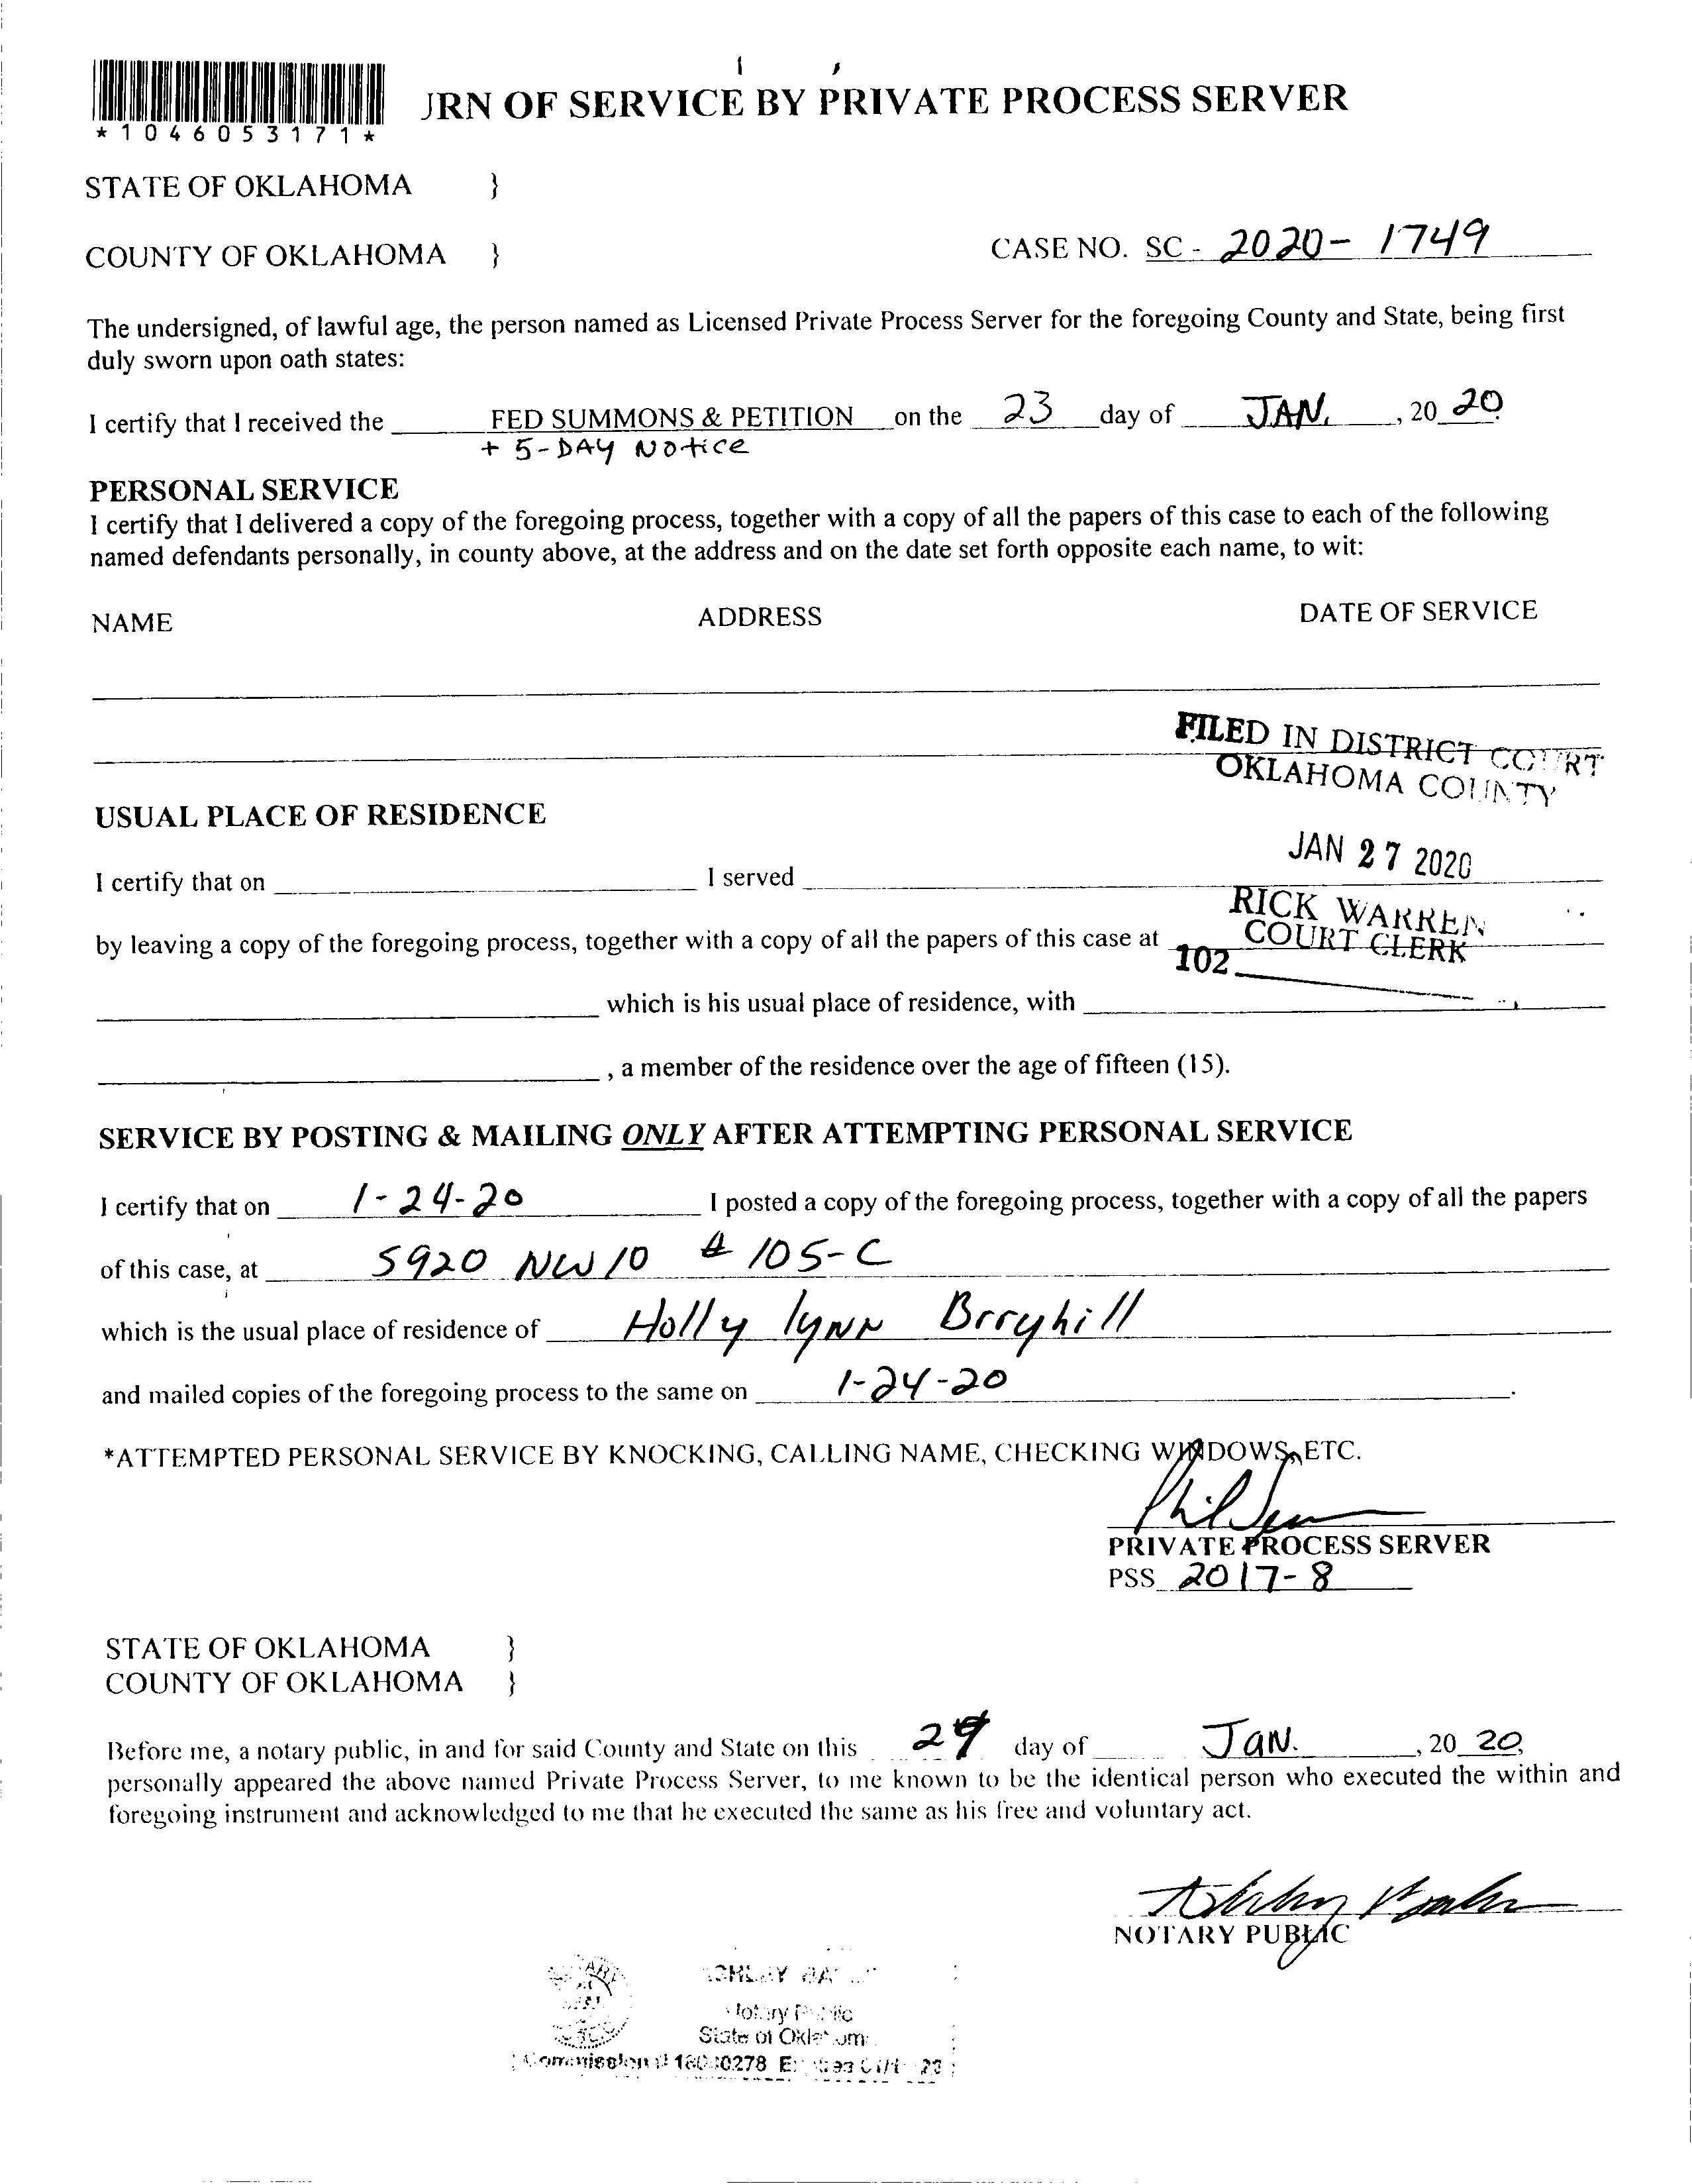 *1046053171*
JRN OF SERVICE BY PRIVATE PROCESS SERVER
STATE OF OKLAHOMA }
COUNTY OF OKLAHOMA } CASE NO. SC - 2020 - 1749
The undersigned, of lawful age, the person named as Licensed Private Process Server for the foregoing County and State, being first
duly sworn upon oath states:
I certify that I received the FED SUMMONS & PETITION on the 23 day of JAN. , 20 20
+ 5-DAY Notice
PERSONAL SERVICE
I certify that I delivered a copy of the foregoing process, together with a copy of all the papers of this case to each of the following
named defendants personally, in county above, at the address and on the date set forth opposite each name, to wit:
NAME ADDRESS DATE OF SERVICE
FILED IN DISTRICT COURT
OKLAHOMA COUNTY
USUAL PLACE OF RESIDENCE
JAN 27 2020
I certify that on I served
RICK WARREN
COURT CLERK
by leaving a copy of the foregoing process, together with a copy of all the papers of this case at
102
which is his usual place of residence, with
, a member of the residence over the age of fifteen (15).
SERVICE BY POSTING & MAILING ONLY AFTER ATTEMPTING PERSONAL SERVICE
I certify that on 1-24-20 I posted a copy of the foregoing process, together with a copy of all the papers
of this case, at 5920 NW 10 # 105-C
which is the usual place of residence of Holly lynn Brryhill
and mailed copies of the foregoing process to the same on 1-24-20 .
*ATTEMPTED PERSONAL SERVICE BY KNOCKING, CALLING NAME, CHECKING WINDOWS, ETC.
PRIVATE PROCESS SERVER
PSS 2017-8
STATE OF OKLAHOMA }
COUNTY OF OKLAHOMA }
Before me, a notary public, in and for said County and State on this day of Jan. , 20 20,
personally appeared the above named Private Process Server, to me known to be the identical person who executed the within and
foregoing instrument and acknowledged to me that he executed the same as his free and voluntary act.
NOTARY PUBLIC
Notary Public
State of Oklahoma
Commission #